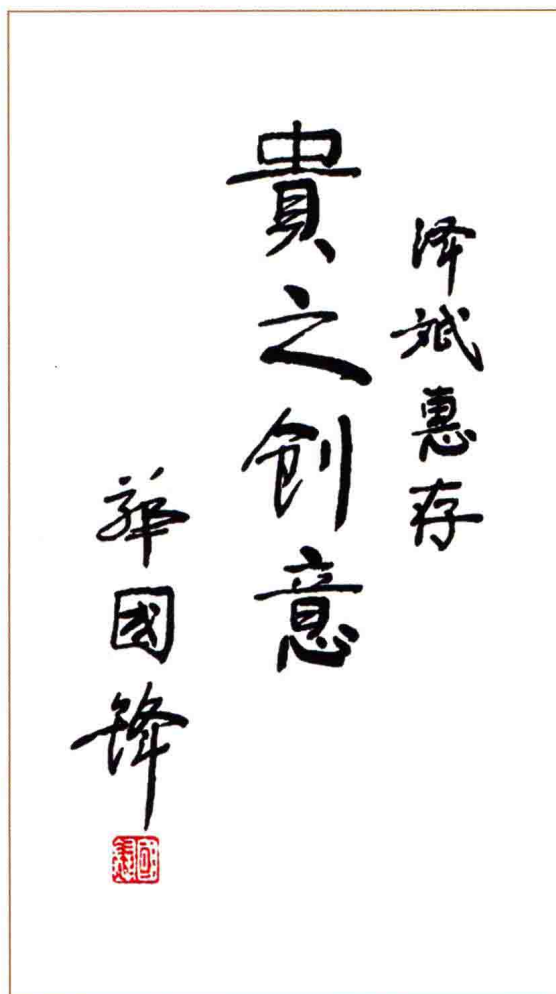 泽斌惠存
貴之創意
華國锋